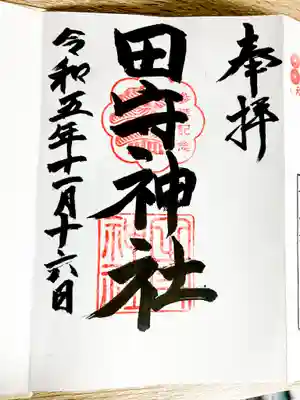 奉拝
田守神社
令和五年十一月十六日